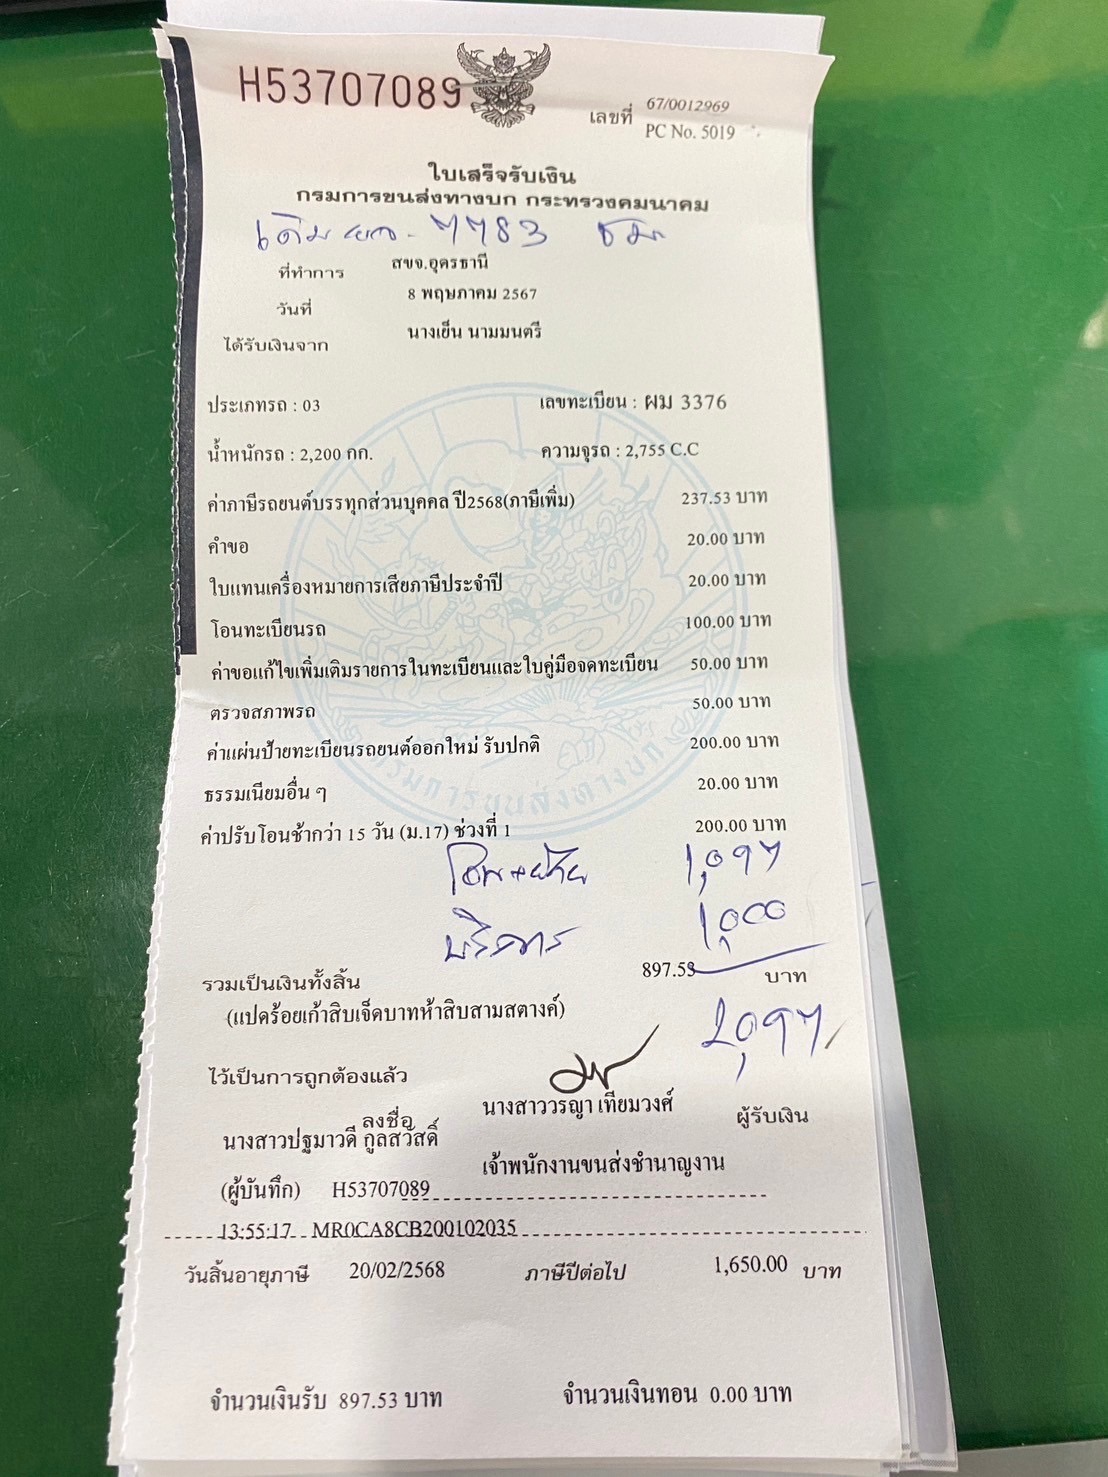 H53707089
เลขที่ 67/0012969
PC No. 5019
ใบเสร็จรับเงิน
กรมการขนส่งทางบก กระทรวงคมนาคม
เดิม 7783 ชม
ที่ทำการ สขจ.อุดรธานี
วันที่ 8 พฤษภาคม 2567
ได้รับเงินจาก นางเย็น นามมนตรี
ประเภทรถ : 03 เลขทะเบียน : ผม 3376
น้ำหนักรถ : 2,200 กก. ความจุรถ : 2,755 C.C
ค่าภาษีรถยนต์บรรทุกส่วนบุคคล ปี2568(ภาษีเพิ่ม) 237.53 บาท
คำขอ 20.00 บาท
ใบแทนเครื่องหมายการเสียภาษีประจำปี 20.00 บาท
โอนทะเบียนรถ 100.00 บาท
ค่าขอแก้ไขเพิ่มเติมรายการในทะเบียนและใบคู่มือจดทะเบียน 50.00 บาท
ตรวจสภาพรถ 50.00 บาท
ค่าแผ่นป้ายทะเบียนรถยนต์ออกใหม่ รับปกติ 200.00 บาท
ธรรมเนียมอื่น ๆ 20.00 บาท
ค่าปรับโอนช้ากว่า 15 วัน (ม.17) ช่วงที่ 1 200.00 บาท
กรมการขนส่งทางบก
โอน+ย้าย 1,097
บริการ 1,000
รวมเป็นเงินทั้งสิ้น 897.53 บาท
(แปดร้อยเก้าสิบเจ็ดบาทห้าสิบสามสตางค์)
2,097
ไว้เป็นการถูกต้องแล้ว
ลงชื่อ นางสาววรญา เทียมวงศ์ ผู้รับเงิน
นางสาวปฐมาวดี กูลสวัสดิ์
เจ้าพนักงานขนส่งชำนาญงาน
(ผู้บันทึก) H53707089
13:55:17 MR0CA8CB200102035
วันสิ้นอายุภาษี 20/02/2568 ภาษีปีต่อไป 1,650.00 บาท
จำนวนเงินรับ 897.53 บาท จำนวนเงินทอน 0.00 บาท